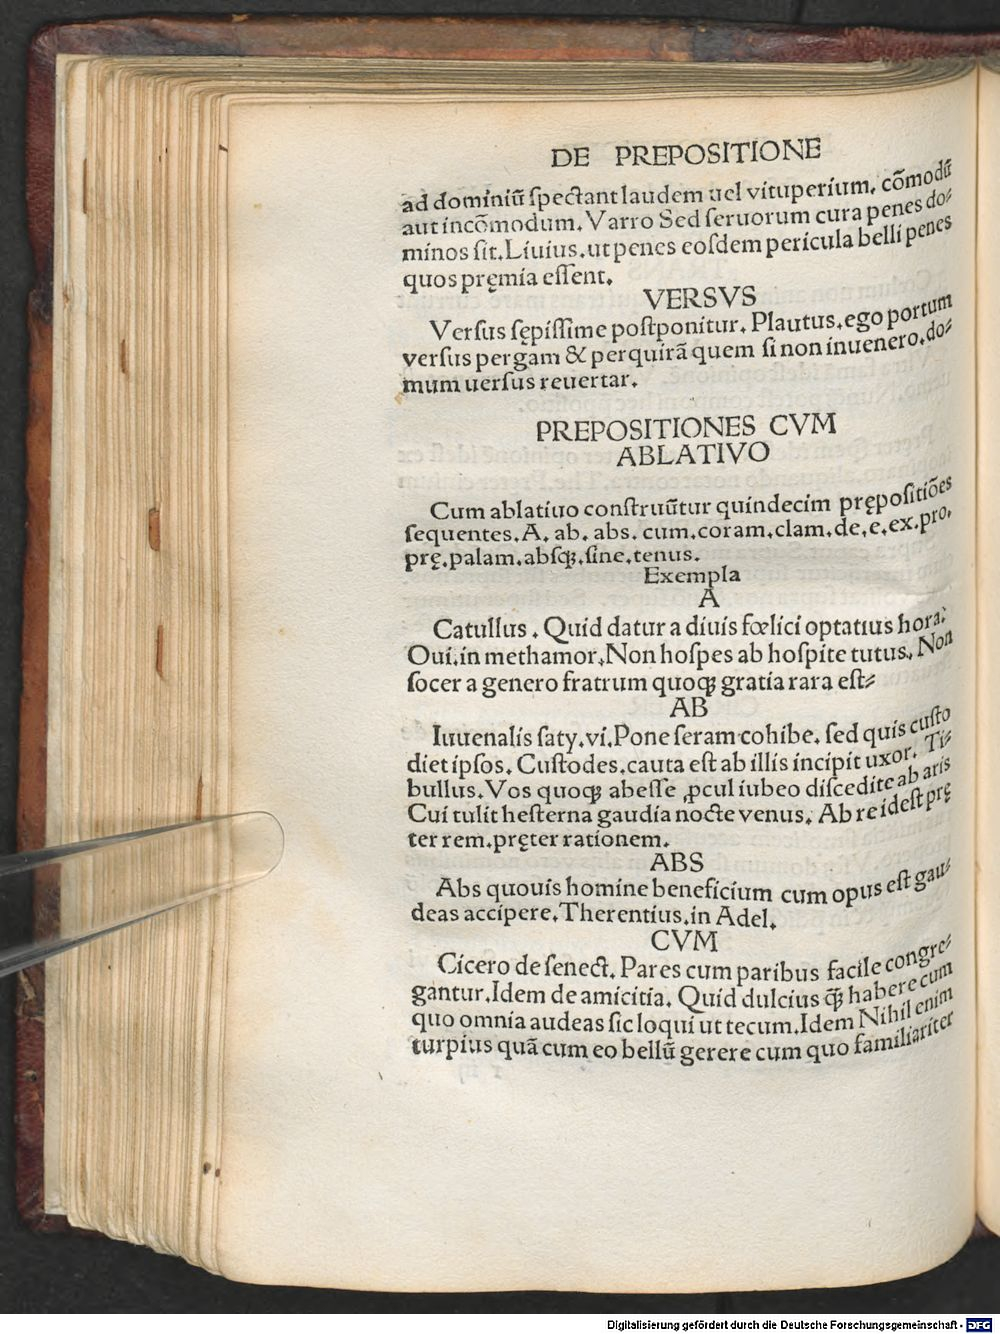 DE PREPOSITIONE
ad dominiū ſpectant laudem uel vituperium. cōmodū
aut incōmodum. Varro Sed ſeruorum cura penes do⸗
minos ſit. Liuius. ut penes eoſdem pericula belli penes
quos pręmia eſſent.
VERSVS
Verſus ſępiſſime poſtponitur. Plautus. ego portum
verſus pergam & perquirā quem ſi non inuenero. do⸗
mum uerſus reuertar.
PREPOSITIONES CVM
ABLATIVO
Cum ablatiuo conſtruūtur quindecim prępoſitiōes
ſequentes. A. ab. abs. cum. coram. clam. de. e. ex. pro.
prę. palam. abſqꝫ. ſine. tenus.
Exempla
A
Catullus. Quid datur a diuis fœlici optatius hora.
Oui. in methamor. Non hoſpes ab hoſpite tutus. Non
ſocer a genero fratrum quoqꝫ gratia rara eſt⸗
AB
Iuuenalis ſaty. vi. Pone ſeram cohibe. ſed quis cuſto
diet ipſos. Cuſtodes. cauta eſt ab illis incipit uxor. Ti⸗
bullus. Vos quoqꝫ abeſſe ꝓcul iubeo diſcedite ab aris
Cui tulit heſterna gaudia nocte venus. Ab re id eſt prę
ter rem. pręter rationem.
ABS
Abs quouis homine beneficium cum opus eſt gau⸗
deas accipere. Therentius. in Adel.
CVM
Cicero de ſenect. Pares cum paribus facile congre⸗
gantur. Idem de amicitia. Quid dulcius qꝫ̄ habere cum
quo omnia audeas ſic loqui ut tecum. Idem Nihil enim
turpius quā cum eo bellū gerere cum quo familiariter
Digitalisierung gefördert durch die Deutsche Forschungsgemeinschaft - DFG